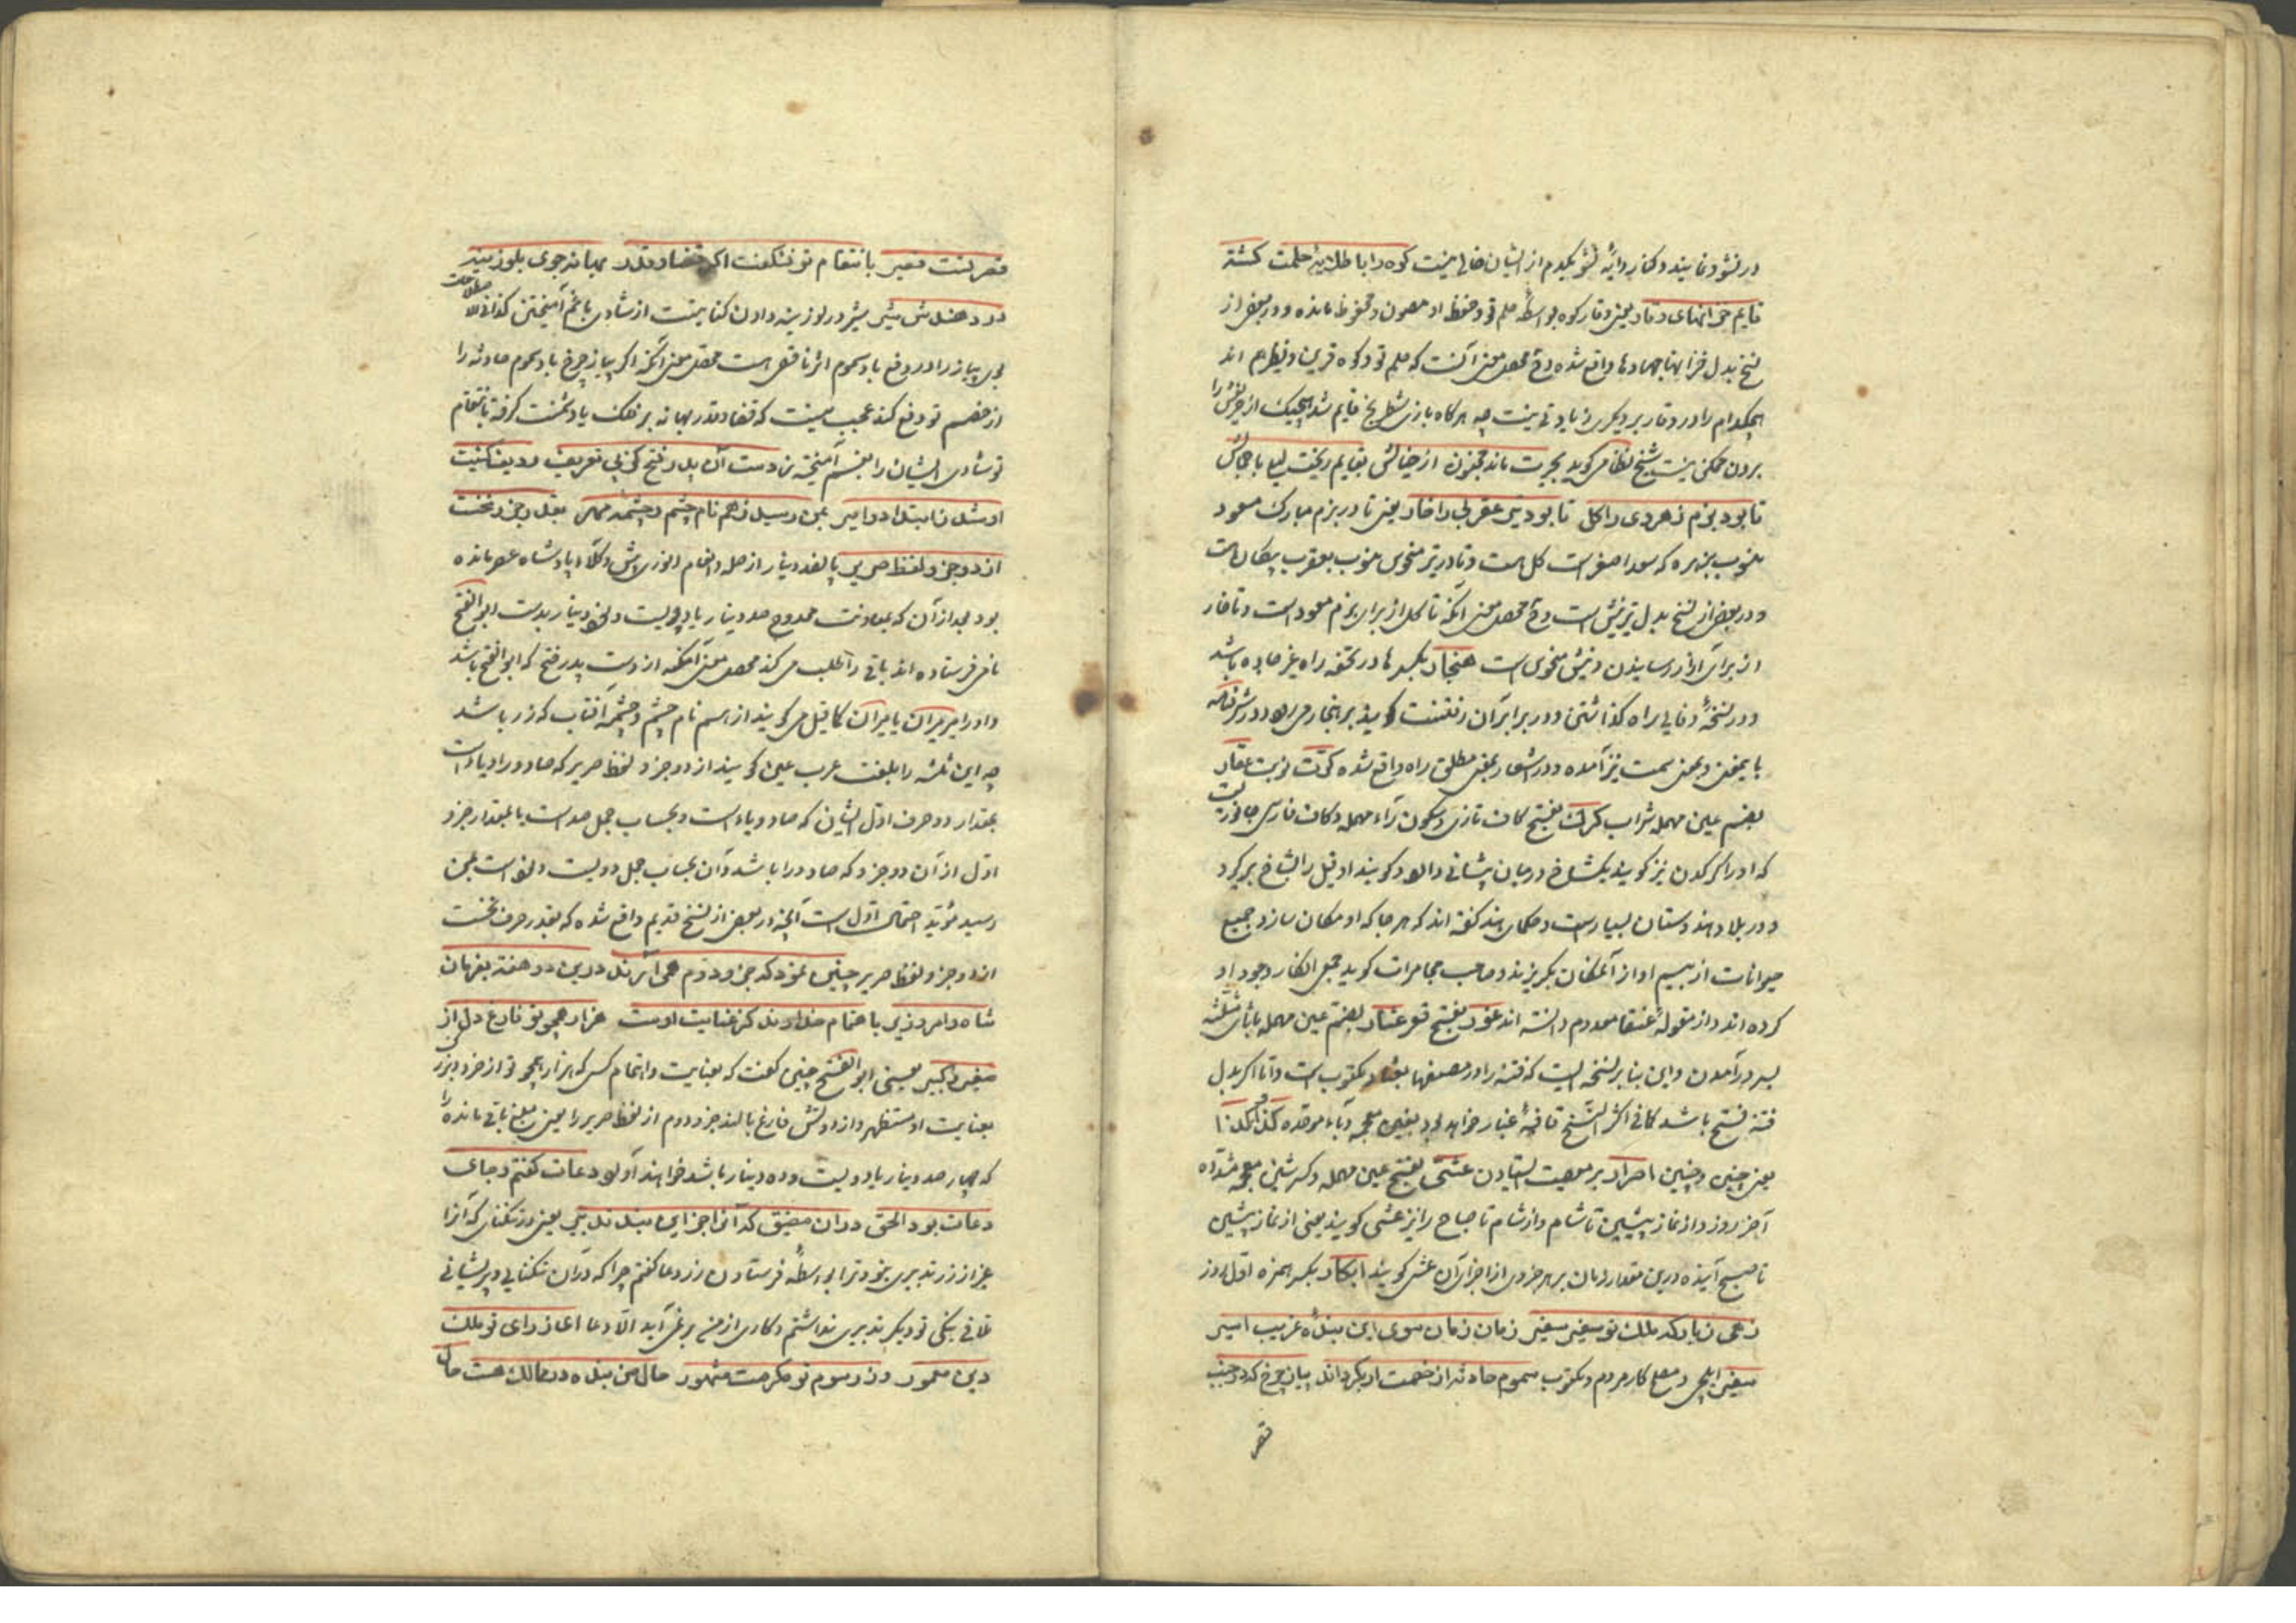 در نشو و نمایند و کنار دایهٔ نشو یکدم از ایشان خالی نیست کوه را با طلایهٔ حلمت کشته
قایم خزانهای وقار یعنی وقار کوه بواسطهٔ حلم تو و حفظ او مصون و محفوظ مانده و در بعض از
نسخ بدل خزانها جهادها واقع شده و ح محصل معنی آنست که حلم تو و کوه قرین و نظیر هم اند
هیچکدام را در وقار بر دیگری زیادتی نیست چه هرگاه بازی شطرنج قایم شد هیچیک از حریفین را
بردن ممکن نیست شیخ نظامی گوید بحیرت ماند مجنون از خیالش بقایم ریخت لیلی با جمالش
تا بود بزم زهره‌ی را کل تا بود تیر عقربی را خار یعنی تا در بزم مبارک مسعود
منسوب بزهره که سعد اصغر است کل هست و تا در تیر منحوس منسوب بعقرب پیکان است
و در بعض از نسخ بدل تیر نیش است و ح محصل معنی آنکه تا کل از برای بزم مسعود است و تا خار
از برای آزار رسانیدن و نیش منحوس است هنجار بکسر ها در تحفه راه غیر جاده باشد
و در نسخهٔ وفایی راه گذاشتن و در برابر آن رفتنست گویند بر هنجار می‌رود و در شرفنامه
باینمعنی و بمعنی سمت نیز آمده و در اشعار بمعنی مطلق راه واقع شده کوت نوبت عقار
بضم عین مهمله شراب کرک بفتح کاف تازی و سکون راء مهمله و کاف فارسی جانوریست
که او را کرکدن نیز گویند یکشاخ در میان پیشانی دارد و گویند او فیل را بشاخ برگیرد
و در بلاد هندوستان بسیار است و حکمای هند گفته اند که هر جا که او مکان سازد جمیع
حیوانات از بیم او از آن مکان بگریزند و صاحب مجامرات گوید جمعی انکار وجود او
کرده اند و از مقولهٔ عنقا معدوم دانسته اند غور بفتح قعر عثار بضم عین مهمله با ثای مثلثه
بسر در آمدن و این بنا بر نسخه ایست که فتنه را در مصنفها بعثار مکتوب است و اما اگر بدل
فتنه فتح باشد کما فی اکثر النسخ قافیهٔ غبار خواهد بود بغین معجمه و باء موحده کذا و کذا
یعنی چنین و چنین اصرار بر معصیت ایستادن عشی بفتح عین مهمله و کسر شین معجمه مشدده
آخر روز و از نماز پیشین تا شام و از شام تا صباح را نیز عشی گویند یعنی از نماز پیشین
تا صبح آینده در این مقدار زمان بر هر جزوی از اجزای آن عشی گویند ابکار بکسر همزه اول روز
زهی زبارکه ملک تو سفیر سفیر زمان زمان سوی این بندهٔ غریب اسیر
سفیر ایلچی و مصلح کار مردم و مکتوب سموم حادثه از خصمت ار بگرداند پیاز چرخ که در جنب
قصر
قصر تست قصیر بانتقام تو نشگفت اگر قضا و قدر بهانه جوی بلوزینه
در دهندش سیر سیر در لوزینه دادن کنایتست از شادی با غم آمیختن کذا فی الاصطلاحات
لوی پیاز را در دفع باد سموم اثر نافعی است محصل معنی آنکه اگر پیاز چرخ باد سموم حادثه را
از خصم تو دفع کند عجیب نیست که قضا و قدر بهانه بر فلک باد شمنت گرفته بانتقام
تو شادی ایشان را بغم آمیخته ز دست آن پدر فتح کز پی تعریف ردیف کنیت
او شد ز ابتدا دو امیر بمن رسید ز هم نام چشم و چشمه مهر بقدر جزو نخست
از دو جزو لفظ حریر پانصد دینار از صله و انعام انوری پیش وکلاء پادشاه عصر مانده
بود بعد از آن که بمعاونت ممدوح صد دینار یا دویست و نود دینار بدست ابو الفتح
نامی فرستاده اند باقی را طلب می کند محصل معنی آنکه از دست پدر فتح که ابو الفتح باشد
و او را میر میران یا میران کما قیل می گویند از اسم نام چشم و چشمه آفتاب که زر باشد
چه این ثلثه را بلغت عرب عین گویند از دو جزو لفظ حریر که صاد و را و یا و راست
بمقدار دو حرف اول ایشان که صاد و یاء است و بحساب جمل صد است یا بمقدار جزو
اول از آن دو جزو که صاد و را باشد و آن بحساب جمل دویست و نود است بمن
رسید مؤید احتمال اول است آنچه در بعض از نسخ قدیم واقع شده که بقدر حرف نخست
از دو جزو لفظ حریر چنین نمود که جزو دوم همی آرند درین دو هفته بفرمان
شاه و امر وزیر باهتمام خداوند کز عنایت اوست هزار همچو تو فارغ دل از
صغیر و کبیر یعنی ابو الفتح چنین گفت که بعنایت و اهتمام کسی که هزار همچو تو از خرد و بزرگ
بعنایت او مستظهر و از دولتش فارغ بالند جزو دوم از لفظ حریر را یعنی مبلغ باقی مانده را
که چهار صد دینار یا دویست و ده دینار باشد خواهند آورد دعات گفتم و جای
دعات بود الحق در ان مضیق که آنرا جز این نبد تدبیر یعنی در تنگنای که آنرا
بغیر از زر تدبیری نبود ترا بواسطهٔ فرستادن زر دعا گفتم چرا که در آن تنگنایی و پریشانی
تلافی نیکی تو دیگر تدبیری نداشتم و کاری از من بر نمی آید الا دعا ایا ز رای تو ملک
دین معمور و ز رسوم تو مکرمت مشهور حال من بنده در ممالک هست حال